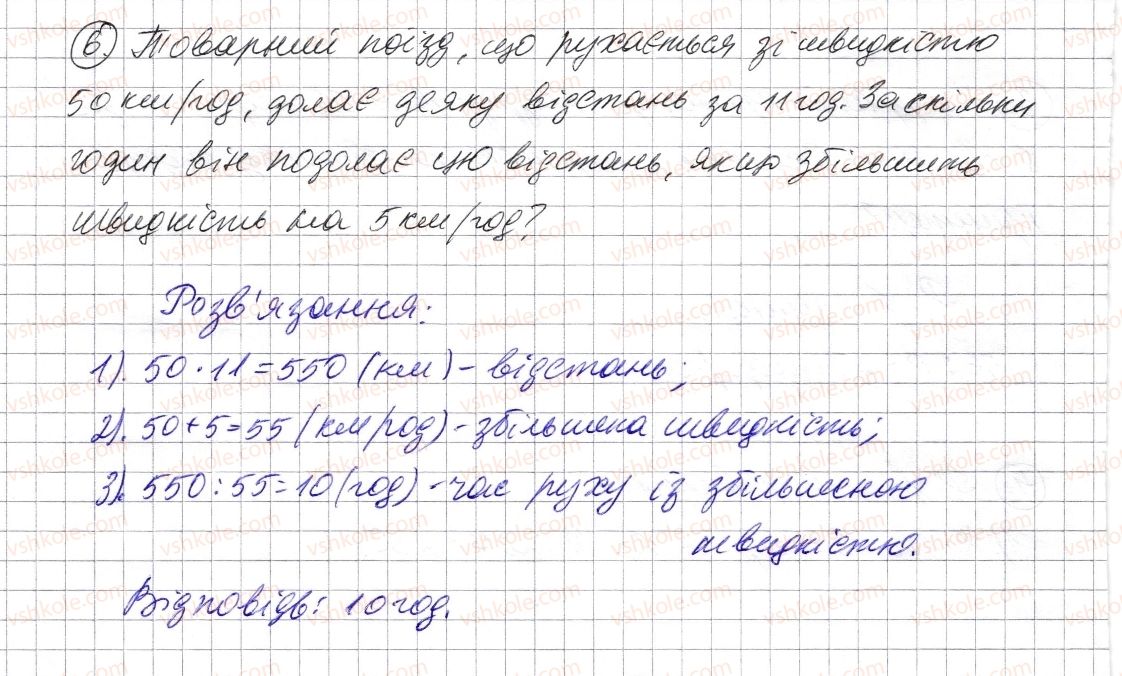 6. Товарний поїзд, що рухається зі швидкістю
50 км/год, долає деяку відстань за 11 год. За скільки
годин він подолає цю відстань, якщо збільшить
швидкість на 5 км/год?
Розв'язання:
1). 50 · 11 = 550 (км) - відстань;
2). 50 + 5 = 55 (км/год) - збільшена швидкість;
3). 550 : 55 = 10 (год) - час руху із збільшеною
швидкістю.
Відповідь: 10 год.
vshkole.com